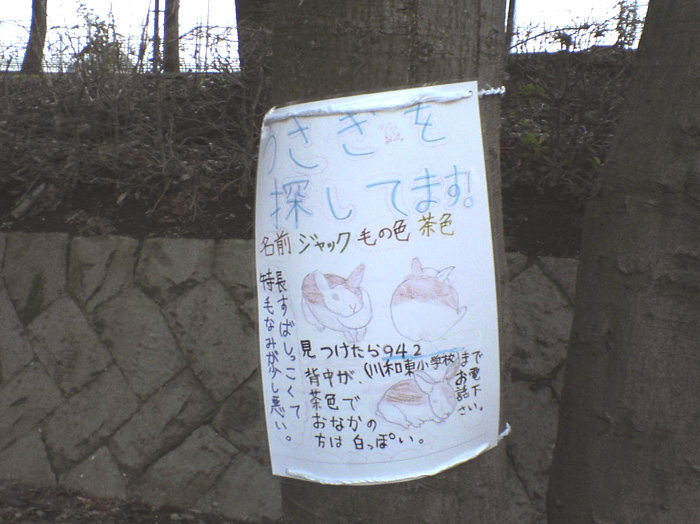 うさぎを
探してます!
名前 ジャック 毛の色 茶色
特長すばしっこくて
毛なみが少し悪い。
見つけたら942
(川和東小学校)まで
お電話下さい。
背中が、
茶色で
おなかの
方は白っぽい。